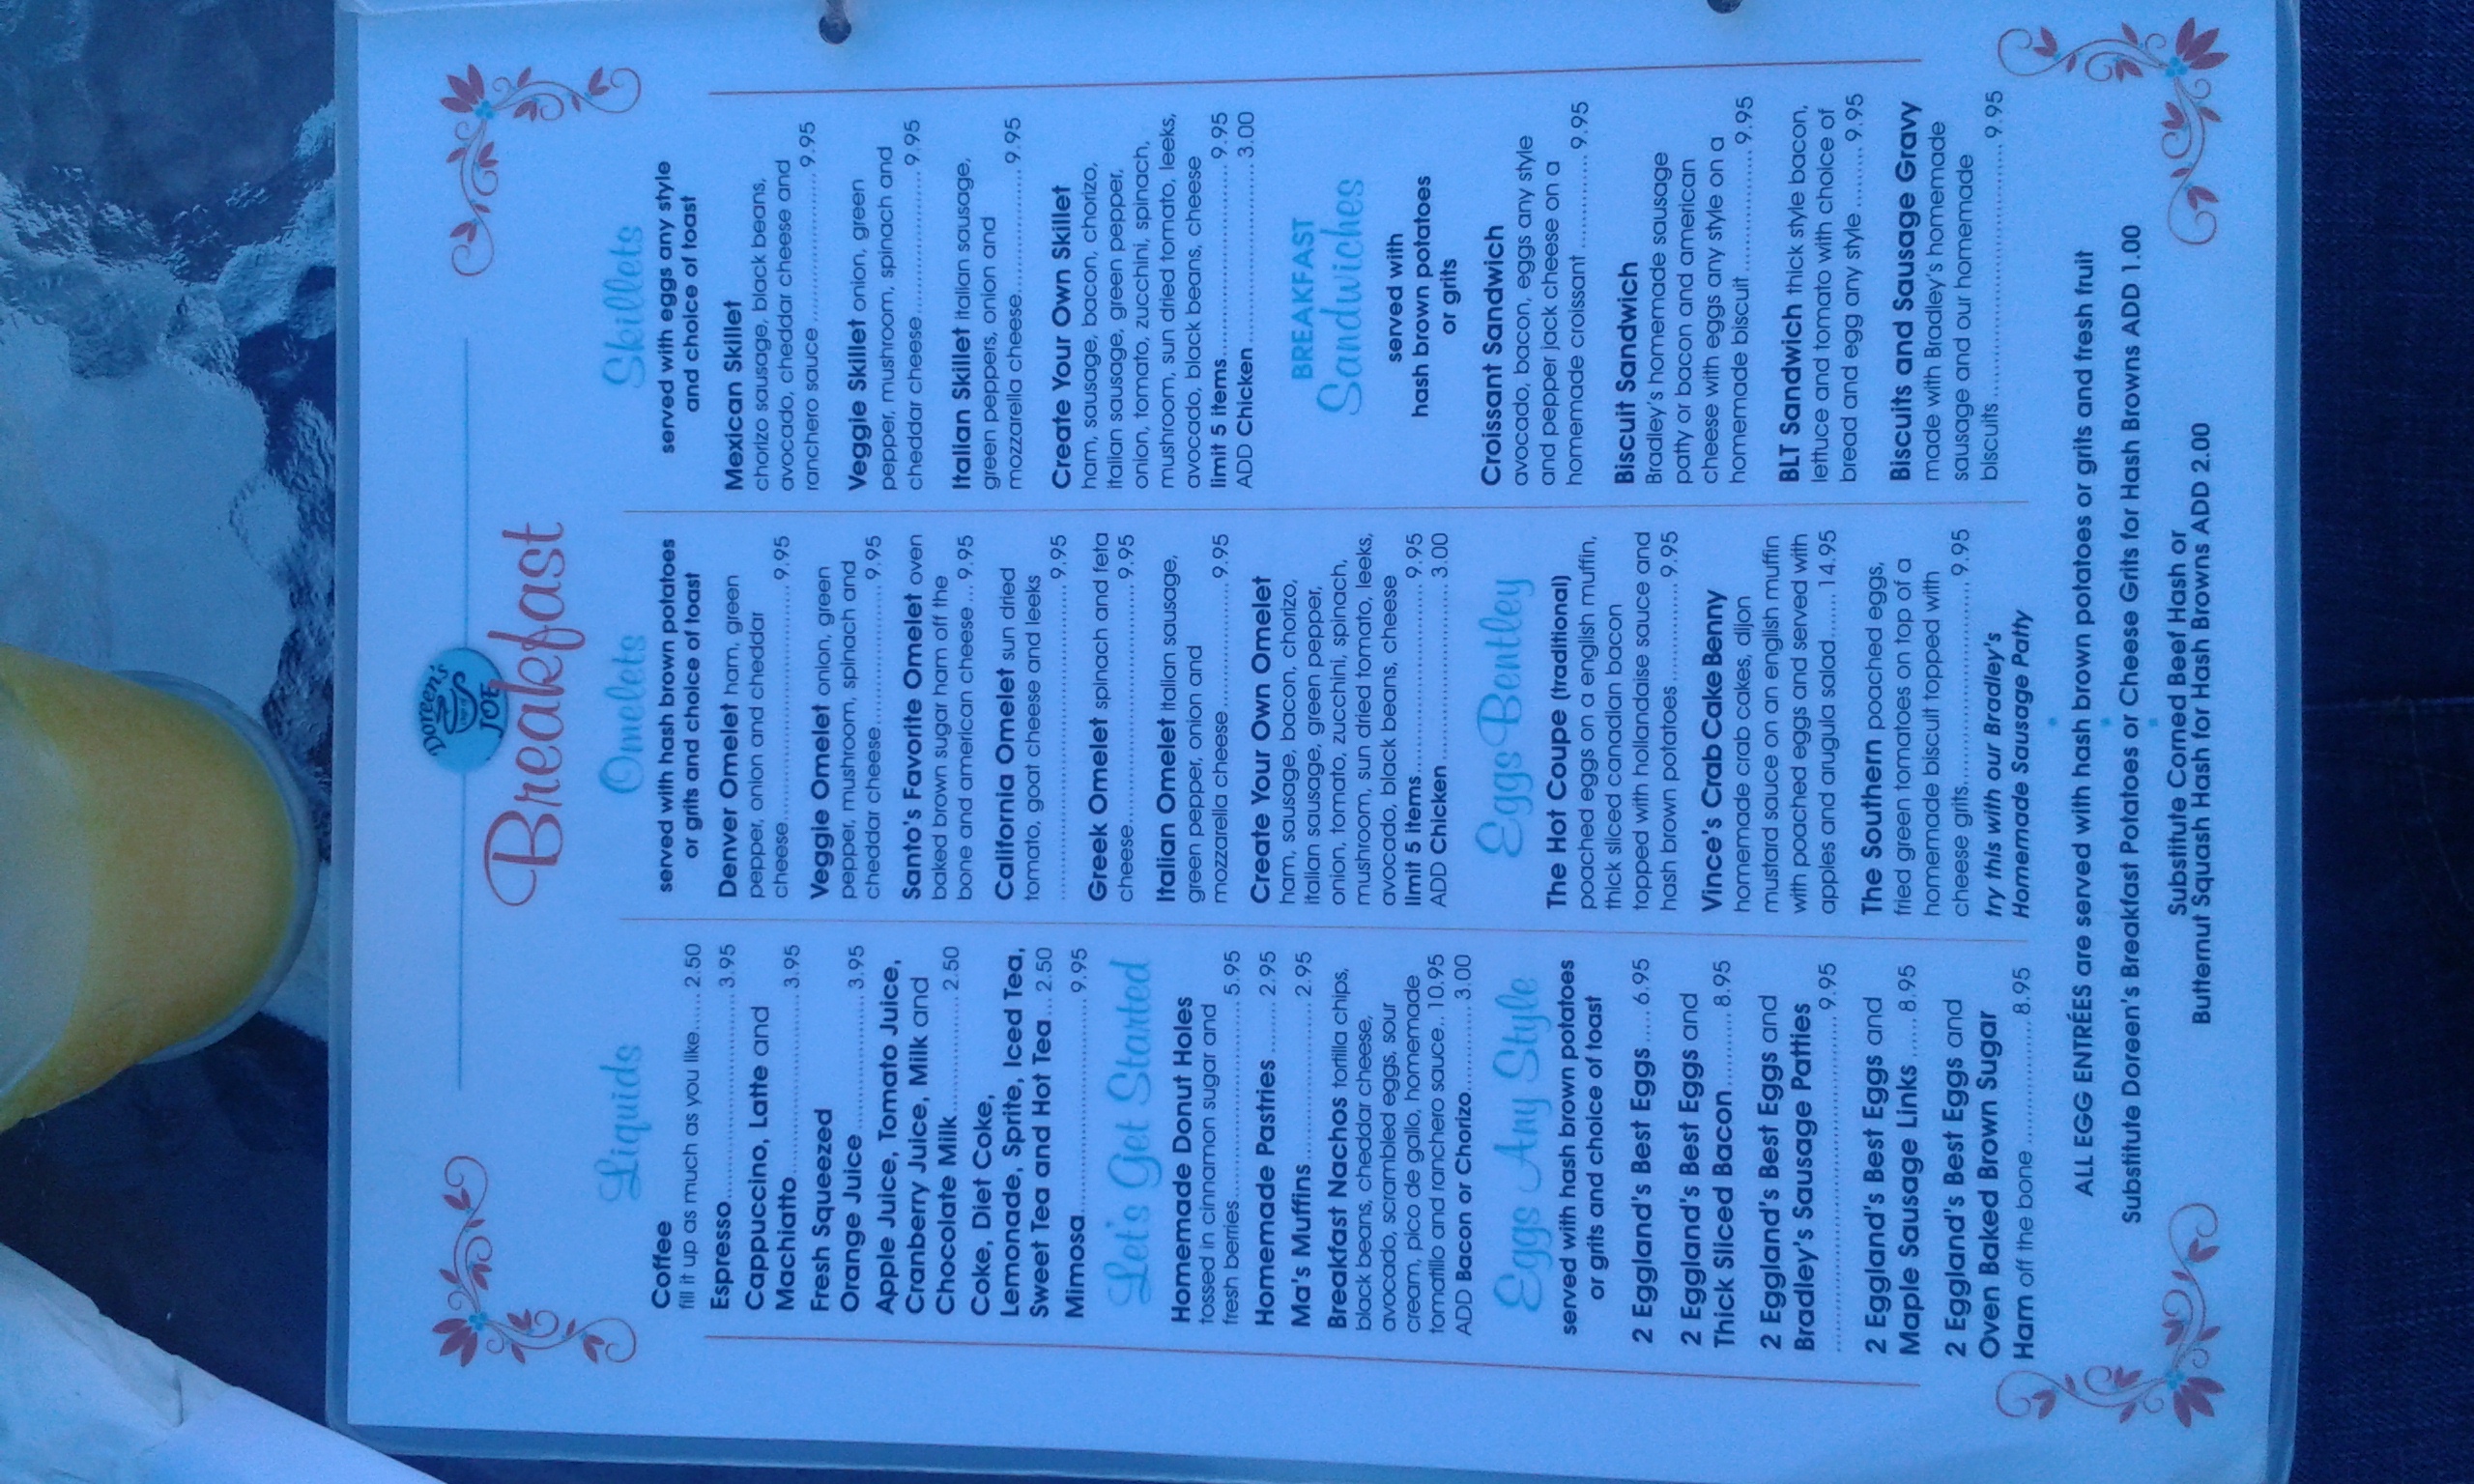 Doreen's
cup of
JOE
Breakfast
Liquids
Coffee
fill it up as much as you like......2.50
Espresso..............................3.95
Cappuccino, Latte and
Machiatto............................3.95
Fresh Squeezed
Orange Juice......................3.95
Apple Juice, Tomato Juice,
Cranberry Juice, Milk and
Chocolate Milk...................2.50
Coke, Diet Coke,
Lemonade, Sprite, Iced Tea,
Sweet Tea and Hot Tea... 2.50
Mimosa................................9.95
Let's Get Started
Homemade Donut Holes
tossed in cinnamon sugar and
fresh berries..........................5.95
Homemade Pastries ........2.95
Ma's Muffins........................2.95
Breakfast Nachos tortilla chips,
black beans, cheddar cheese,
avocado, scrambled eggs, sour
cream, pico de gallo, homemade
tomatillo and ranchero sauce.. 10.95
ADD Bacon or Chorizo...........3.00
Eggs Any Style
served with hash brown potatoes
or grits and choice of toast
2 Eggland's Best Eggs .....6.95
2 Eggland's Best Eggs and
Thick Sliced Bacon...........8.95
2 Eggland's Best Eggs and
Bradley's Sausage Patties
................................................9.95
2 Eggland's Best Eggs and
Maple Sausage Links .....8.95
2 Eggland's Best Eggs and
Oven Baked Brown Sugar
Ham off the bone ................8.95
Omelets
served with hash brown potatoes
or grits and choice of toast
Denver Omelet ham, green
pepper, onion and cheddar
cheese................................9.95
Veggie Omelet onion, green
pepper, mushroom, spinach and
cheddar cheese....................9.95
Santo's Favorite Omelet oven
baked brown sugar ham off the
bone and american cheese ...9.95
California Omelet sun dried
tomato, goat cheese and leeks
............................................9.95
Greek Omelet spinach and feta
cheese................................9.95
Italian Omelet italian sausage,
green pepper, onion and
mozzarella cheese.................9.95
Create Your Own Omelet
ham, sausage, bacon, chorizo,
italian sausage, green pepper,
onion, tomato, zucchini, spinach,
mushroom, sun dried tomato, leeks,
avocado, black beans, cheese
limit 5 items.........................9.95
ADD Chicken.........................3.00
Eggs Bentley
The Hot Coupe (traditional)
poached eggs on a english muffin,
thick sliced canadian bacon
topped with hollandaise sauce and
hash brown potatoes..............9.95
Vince's Crab Cake Benny
homemade crab cakes, dijon
mustard sauce on an english muffin
with poached eggs and served with
apples and arugula salad.......14.95
The Southern poached eggs,
fried green tomatoes on top of a
homemade biscuit topped with
cheese grits...........................9.95
try this with our Bradley's
Homemade Sausage Patty
Skillets
served with eggs any style
and choice of toast
Mexican Skillet
chorizo sausage, black beans,
avocado, cheddar cheese and
ranchero sauce......................9.95
Veggie Skillet onion, green
pepper, mushroom, spinach and
cheddar cheese.....................9.95
Italian Skillet italian sausage,
green peppers, onion and
mozzarella cheese.................9.95
Create Your Own Skillet
ham, sausage, bacon, chorizo,
italian sausage, green pepper,
onion, tomato, zucchini, spinach,
mushroom, sun dried tomato, leeks,
avocado, black beans, cheese
limit 5 items..........................9.95
ADD Chicken.........................3.00
BREAKFAST
Sandwiches
served with
hash brown potatoes
or grits
Croissant Sandwich
avocado, bacon, eggs any style
and pepper jack cheese on a
homemade croissant..............9.95
Biscuit Sandwich
Bradley's homemade sausage
patty or bacon and american
cheese with eggs any style on a
homemade biscuit.................9.95
BLT Sandwich thick style bacon,
lettuce and tomato with choice of
bread and egg any style.........9.95
Biscuits and Sausage Gravy
made with Bradley's homemade
sausage and our homemade
biscuits.................................9.95
ALL EGG ENTRÉES are served with hash brown potatoes or grits and fresh fruit
Substitute Doreen's Breakfast Potatoes or Cheese Grits for Hash Browns ADD 1.00
Substitute Corned Beef Hash or
Butternut Squash Hash for Hash Browns ADD 2.00